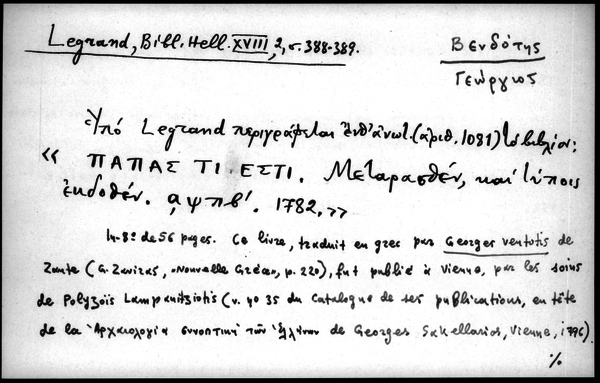 Legrand, Bibl. Hell. XVIII, 2, σ. 388-389.
Βενδότης
Γεώργιος
Ὑπό Legrand περιγράφεται ἐνθ' ἀνωτ. (ἀριθ. 1081) τό βιβλίον:
« ΠΑΠΑΣ ΤΙ ΕΣΤΙ. Μεταφρασθέν, καί τύποις
ἐκδοθέν. αψπβ'. 1782.»
In-8º de 56 pages. Ce livre, traduit en grec par Georges Ventotis de
Zante (G. Zaviras, «Nouvelle Grèce», p. 220), fut publié à Vienne, par les soins
de Polyzoïs Lampanitziotis (v. nº 35 du Catalogue de ses publications, en tête
de la Ἀρχαιολογία συνοπτική τῶν Ἑλλήνων de Georges Sakellarios, Vienne, 1796).
%